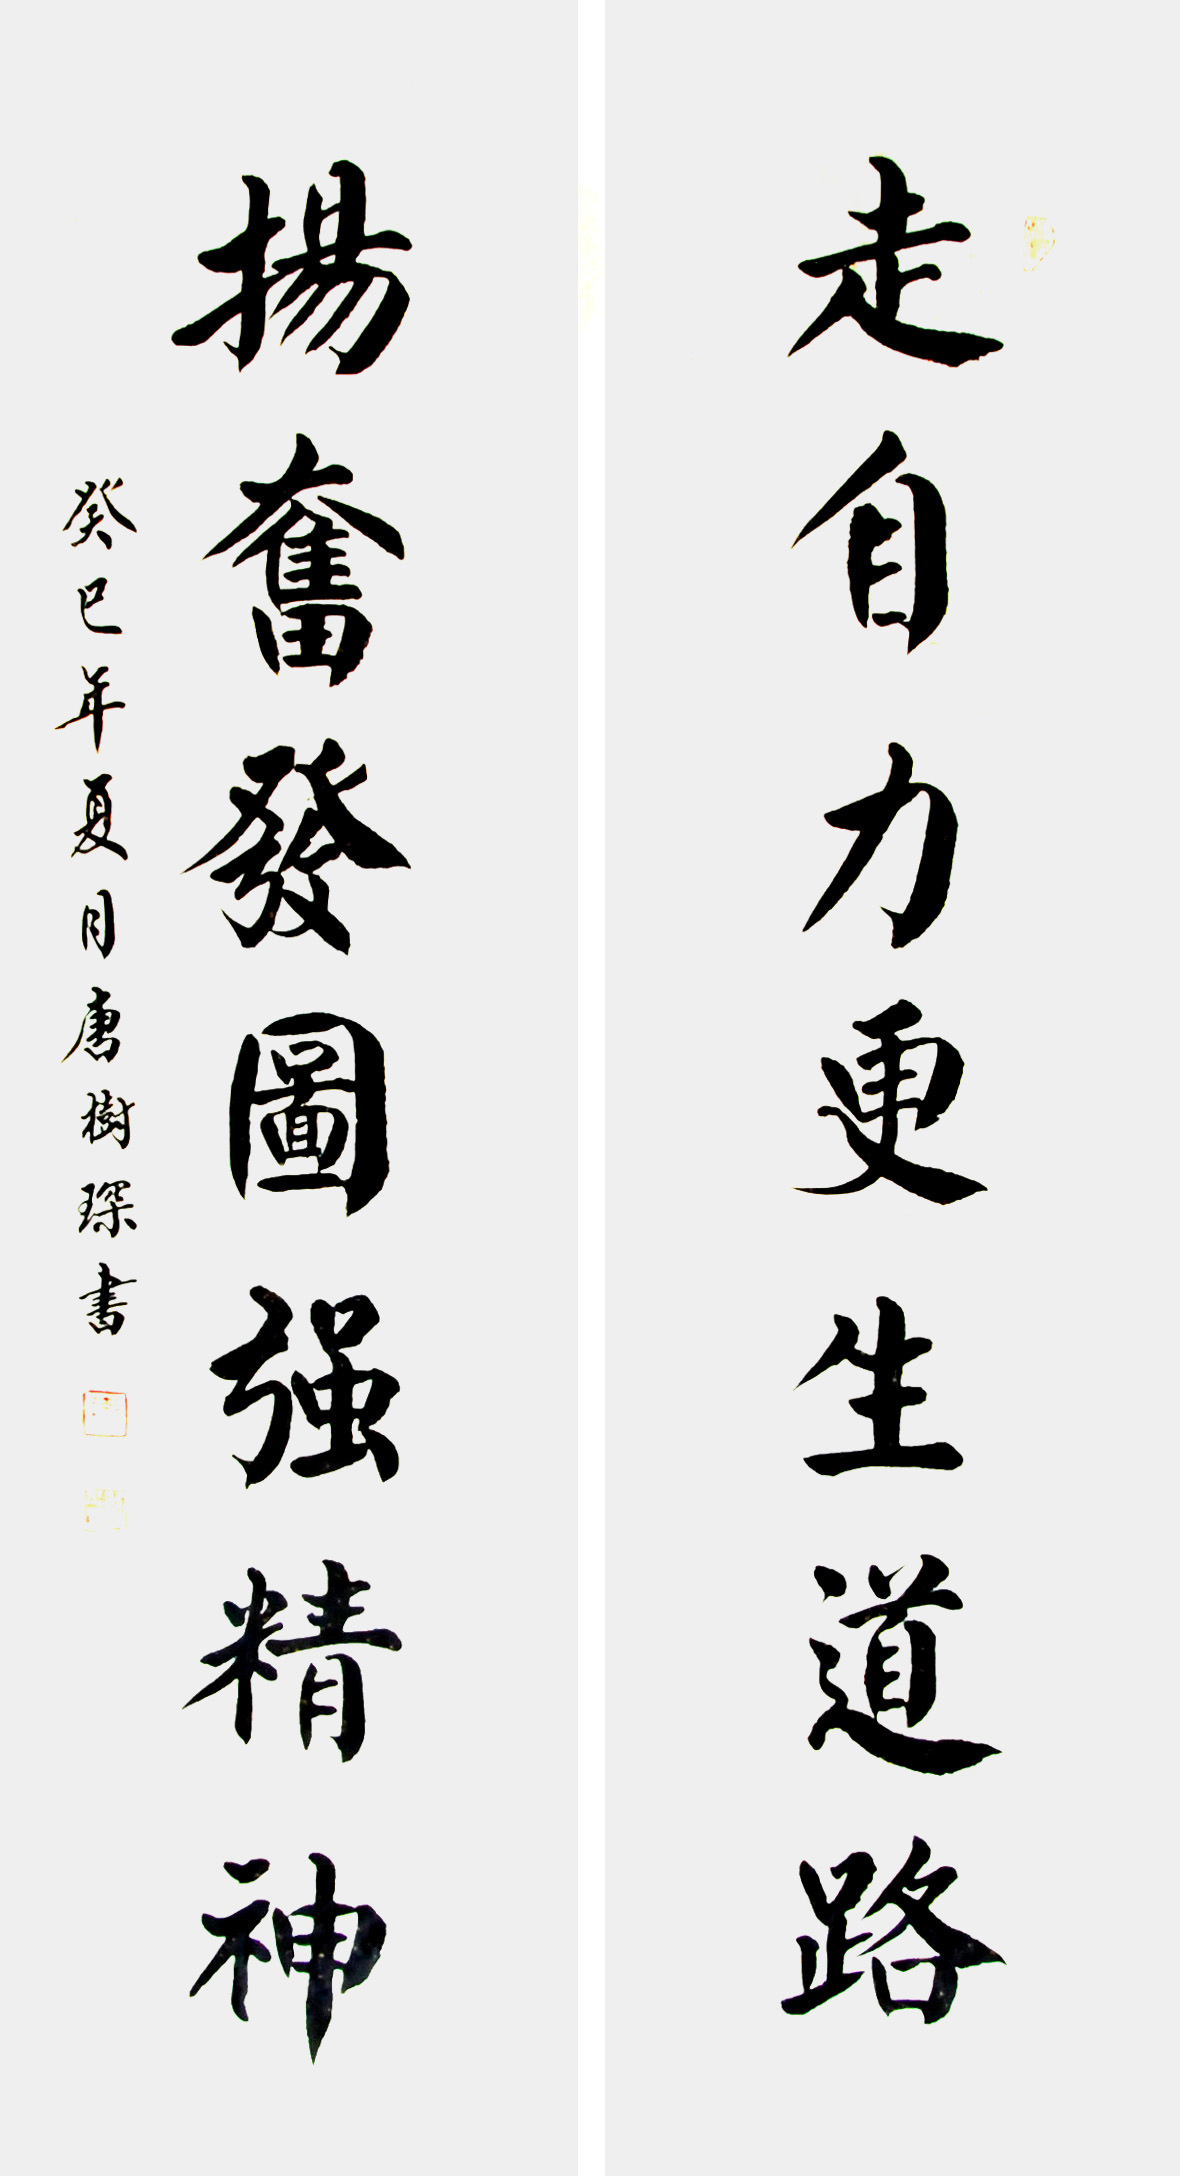 走自力更生道路
揚奮發圖强精神
癸巳年夏月唐樹琛書